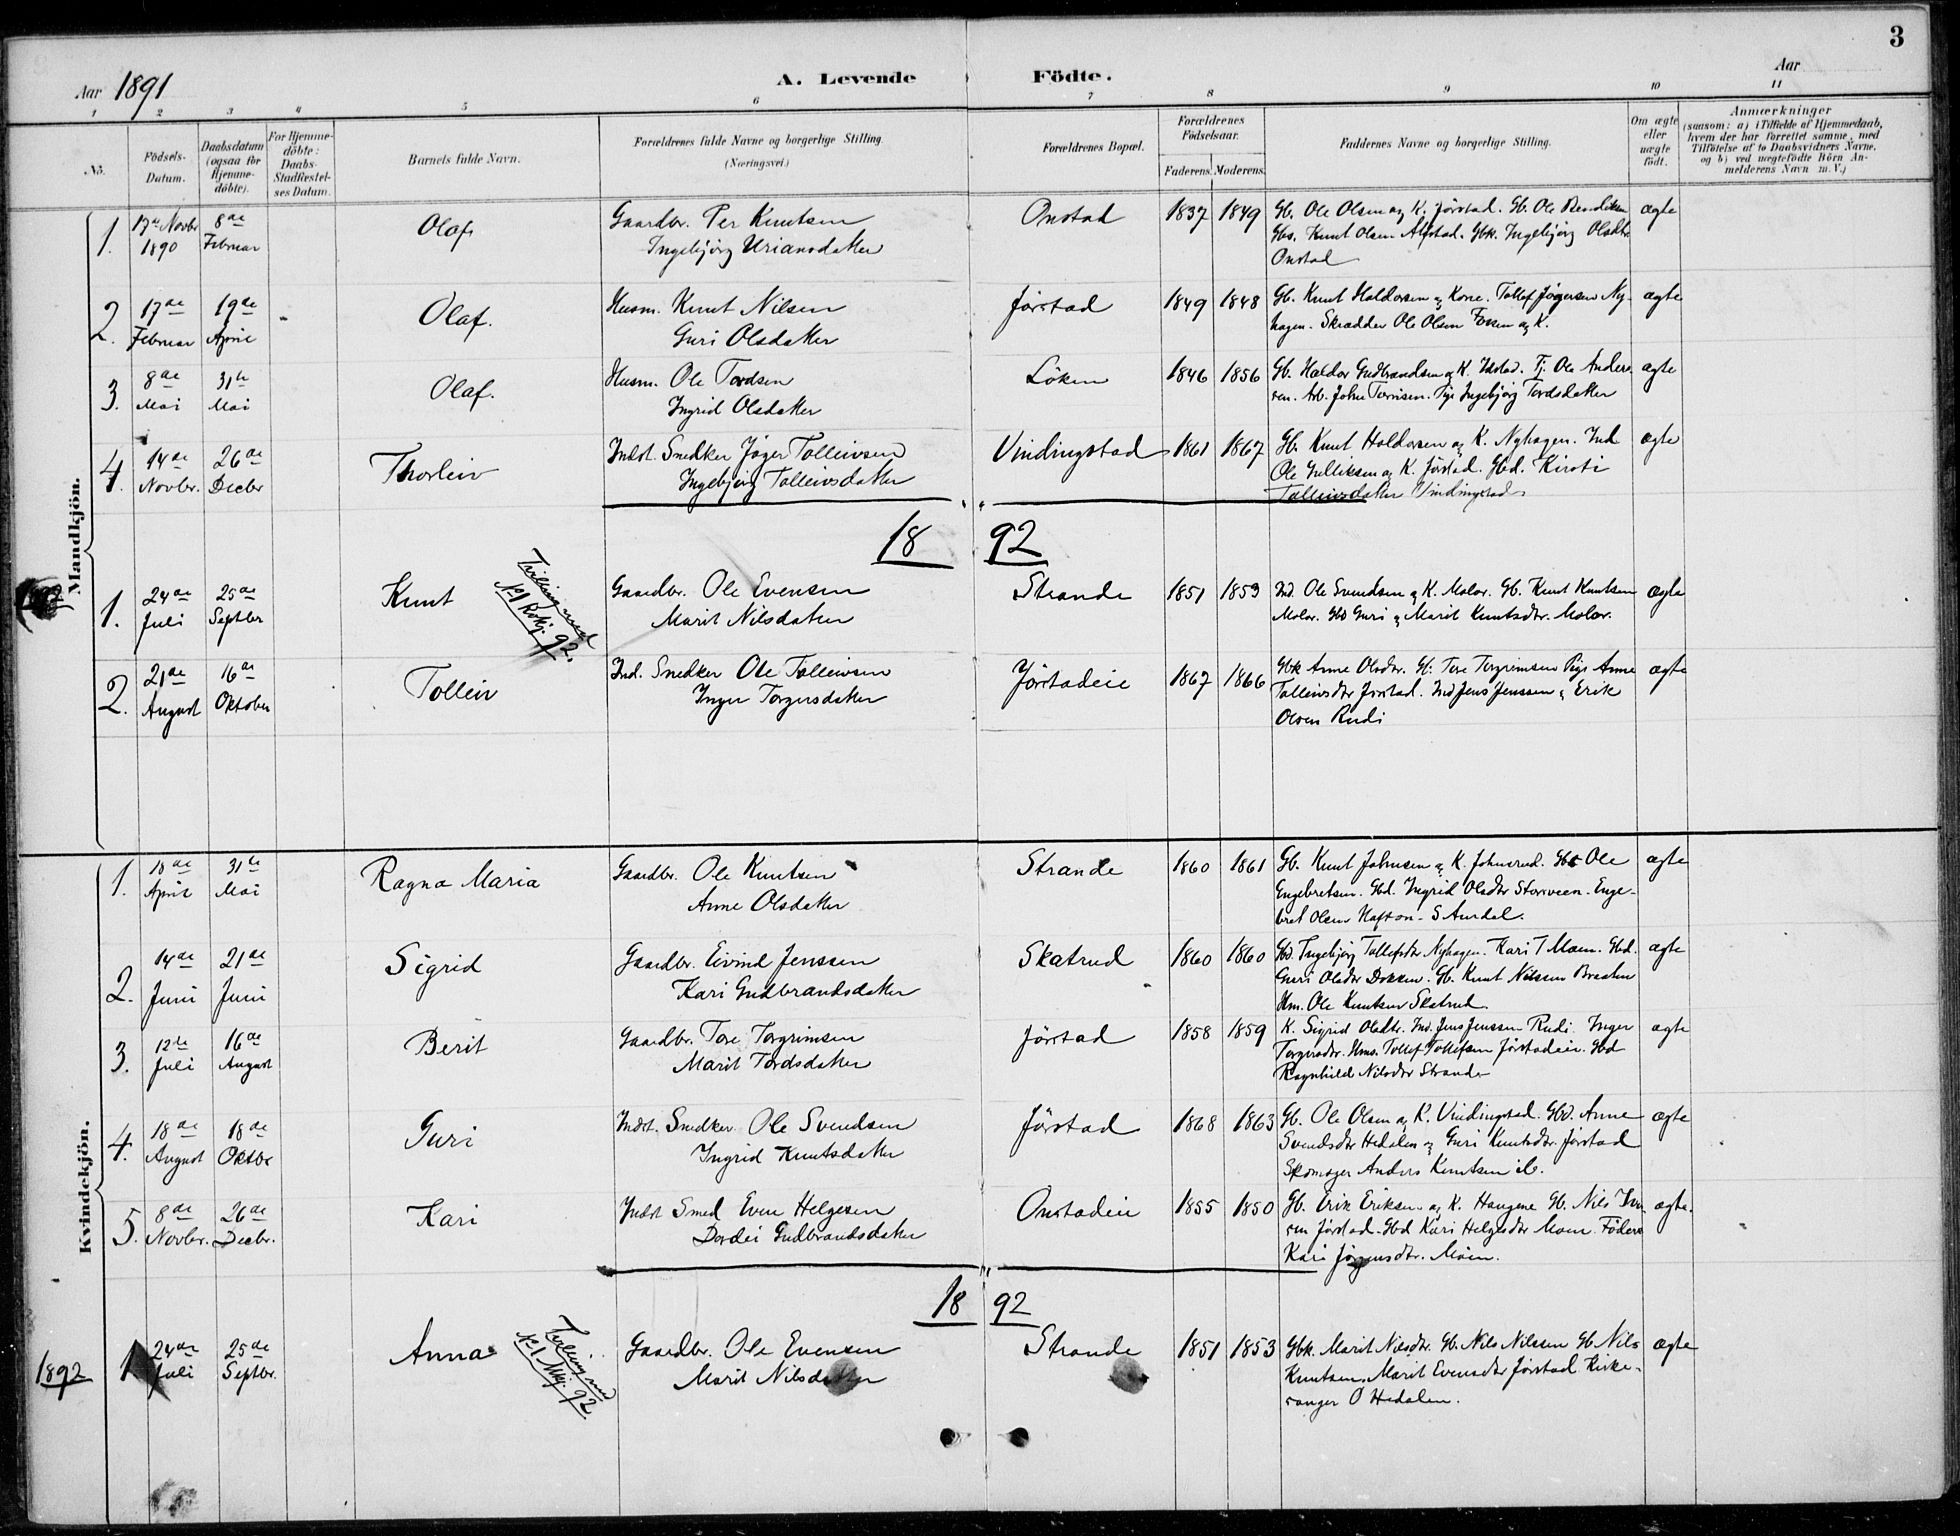 3
Aar 1891
A. Levende Födte.
Aar
1 2 3 4 5 6 7 8 9 10 11
No.
Födsels-Datum.
Daabsdatum (ogsaa for Hjemme-döbte).
For Hjemme-döbte: Daabs-Stadfæstel-ses Datum.
Barnets fulde Navn.
Forældrenes fulde Navne og borgerlige Stilling (Næringsvei.)
Forældrenes Bopæl.
Forældrenes Födselsaar.
Faderens. Moderens.
Faddernes Navne og borgerlige Stilling.
Om ægte eller uægte födt.
Anmærkninger
(saasom: a) i Tilfælde af Hjemmedaab,
hvem der har forrettet samme, med
Tilföielse af to Daabsvidners Navne,
og b) ved uægtefödte Börn An-
melderens Navn m.V.)
Mandkjön.
1. 17de Novbr 8de Olaf Gaardbr. Per Knutsen Onstad 1837 1849 Gb. Ole Olsen og K. Jörstad. Gb. Ole ægte
1890 Februar Ingebjörg Uriansdatter Gbs. Knut Olsen. Gbk. Ingebjörg Olsdtr
Onstad
2. 17de 19de Olaf. Husm. Knut Nilsen Jörstad 1849 1848 Gb. Knut Haldorsen og Kone. Tollef Jögersen Ny- ægte
Februar April Guri Olsdatter hagen. Skrædder Ole Olsen Fossen og K.
3. 8de 31te Olaf. Husm. Ole Tordsen Löken 1846 1856 Gb. Haldor Gudbrandsen og K. Ildstad. Tj. Ole Anders- ægte
Mai Mai Ingrid Olsdatter sen. Arb. John Torrisen. Pige Ingebjörg Tordsdatter
4. 14de 26de Thorleiv Indst. Snedker Jöger Tolleivsen Vindingstad 1861 1867 Gb. Knut Haldorsen og K. Nyhagen. Ind ægte
Novbr. Decbr Ingebjörg Tolleivsdatter Ole Gulliksen og K. Jörstad. Gbd. Kirsti
Tolleivsdatter Vindingstad
18 92
1. 24de 25de Knut Tvilling med Gaardbr. Ole Evensen Strande 1851 1853 Ind. Ole Svendsen og K. Moler. Gb. Knut Knutsen ægte
Juli Septbr No 1 Kvkj. 92. Marit Nilsdatter Moler. Gbd Guri og Marit Knutsdtr. Moler.
2. 21de 16de Tolleiv Ind. Snedker Ole Tolleivsen Jörstadeie 1867 1866 Gbk Anne Olsdtr. Gb. Tore Torgrimsen Pige Anne ægte
August Oktober Inger Torgersdatter Tolleivsdtr Jörstad. Ind Jens Jenssen og Erik
Olsen Rudi
Kvindekjön.
1. 18de 31te Ragna Maria Gaardbr. Ole Knutsen Strande 1860 1861 Gb. Knut Johnsen og K. Johnsrud. Gbs Ole ægte
April Mai Anne Olsdatter Engebretsen. Gbd. Ingrid Olsdtr Storsveen. Enge-
bret Olsen Hafton. S Aurdal.
2. 14de 21de Sigrid Gaardbr. Eivind Jenssen Skatrud 1860 1860 Gbd. Ingebjörg Tollefsdtr Nyhagen. Kari T Moen. Gbd. ægte
Juni Juni Kari Gudbrandsdatter Guri Olsdtr Dokken. Gb. Knut Nilssen Braaten
Hm. Ole Knutsen Skatrud
3. 12te 16de Berit Gaardbr. Tore Torgrimsen Jörstad 1858 1859 K. Sigrid Olsdtr. Ind. Jens Jenssen Rudi. Inger ægte
Juli August Marit Tordsdatter Torgersdtr. Hms. Tollef Tollefsen Jörstadeie. Gbd
Ragnhild Nilsdtr Strande
4. 18de 18de Guri Indst. Snedker Ole Svendsen Jörstad 1868 1863 Gb. Ole Olsen og K. Vindingstad. Gbd. Anne ægte
August Oktbr Ingrid Knutsdatter Svendsdtr Hedalen og Guri Knutsdtr. Jörstad
Skomager Anders Knutsen ib.
5. 8de 26de Kari Indst Smed Even Helgesen Onstadeie 1855 1850 Gb. Erik Eriksen og K. Haugene Gb. Nils Iver- ægte.
Novbr. Decbr. Dordei Gudbrandsdatter sen Jörstad. Gbd Kari Helgesdtr Moen. Föder
Kari Jörgensdtr. Moen.
18 92
1892 1 24de 25de Anna Tvilling med Gaardbr. Ole Evensen Strande 1851 1853 Gbk. Marit Nilsdtr. Gb. Nils Nilssen Gb. Nils ægte
Juli Septbr. No 1 Mkj. 92 Marit Nilsdatter Knutsen. Marit Evensdtr Jörstad. Kirke-
sanger O Hedalen.